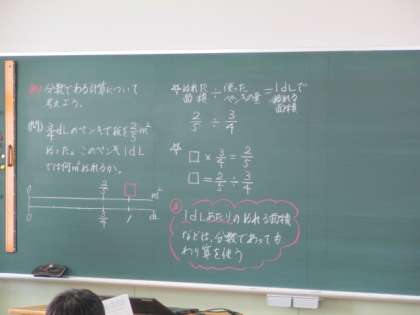 分数でわる計算について
考えよう。
(問) 3/4dLのペンキで板を2/5m²
ぬった。このペンキ1dL
では何m²ぬれるか。
0 2/5 □ m²
0 3/4 1 dL
ぬれた面積 ÷ 使ったペンキの量 = 1dLでぬれる面積
2/5 ÷ 3/4
□ × 3/4 = 2/5
□ = 2/5 ÷ 3/4
1dLあたりのぬれる面積
などは、分数であっても
わり算を使う